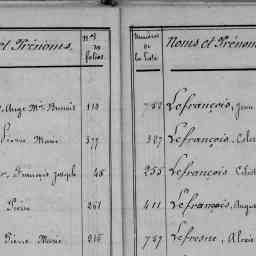 et Prénoms. Nos des folios.
Ange Mie 118
Pierre Marie 377
François Joseph 45
Pierre 261
Pierre Marie 216
Numéros de la liste Noms et Prénom
752 Lefrançois, Jean
387 Lefrançois, Céles
255 Lefrançois Célest
411 Lefrançois, Augus
787 Lefresne, Alexis